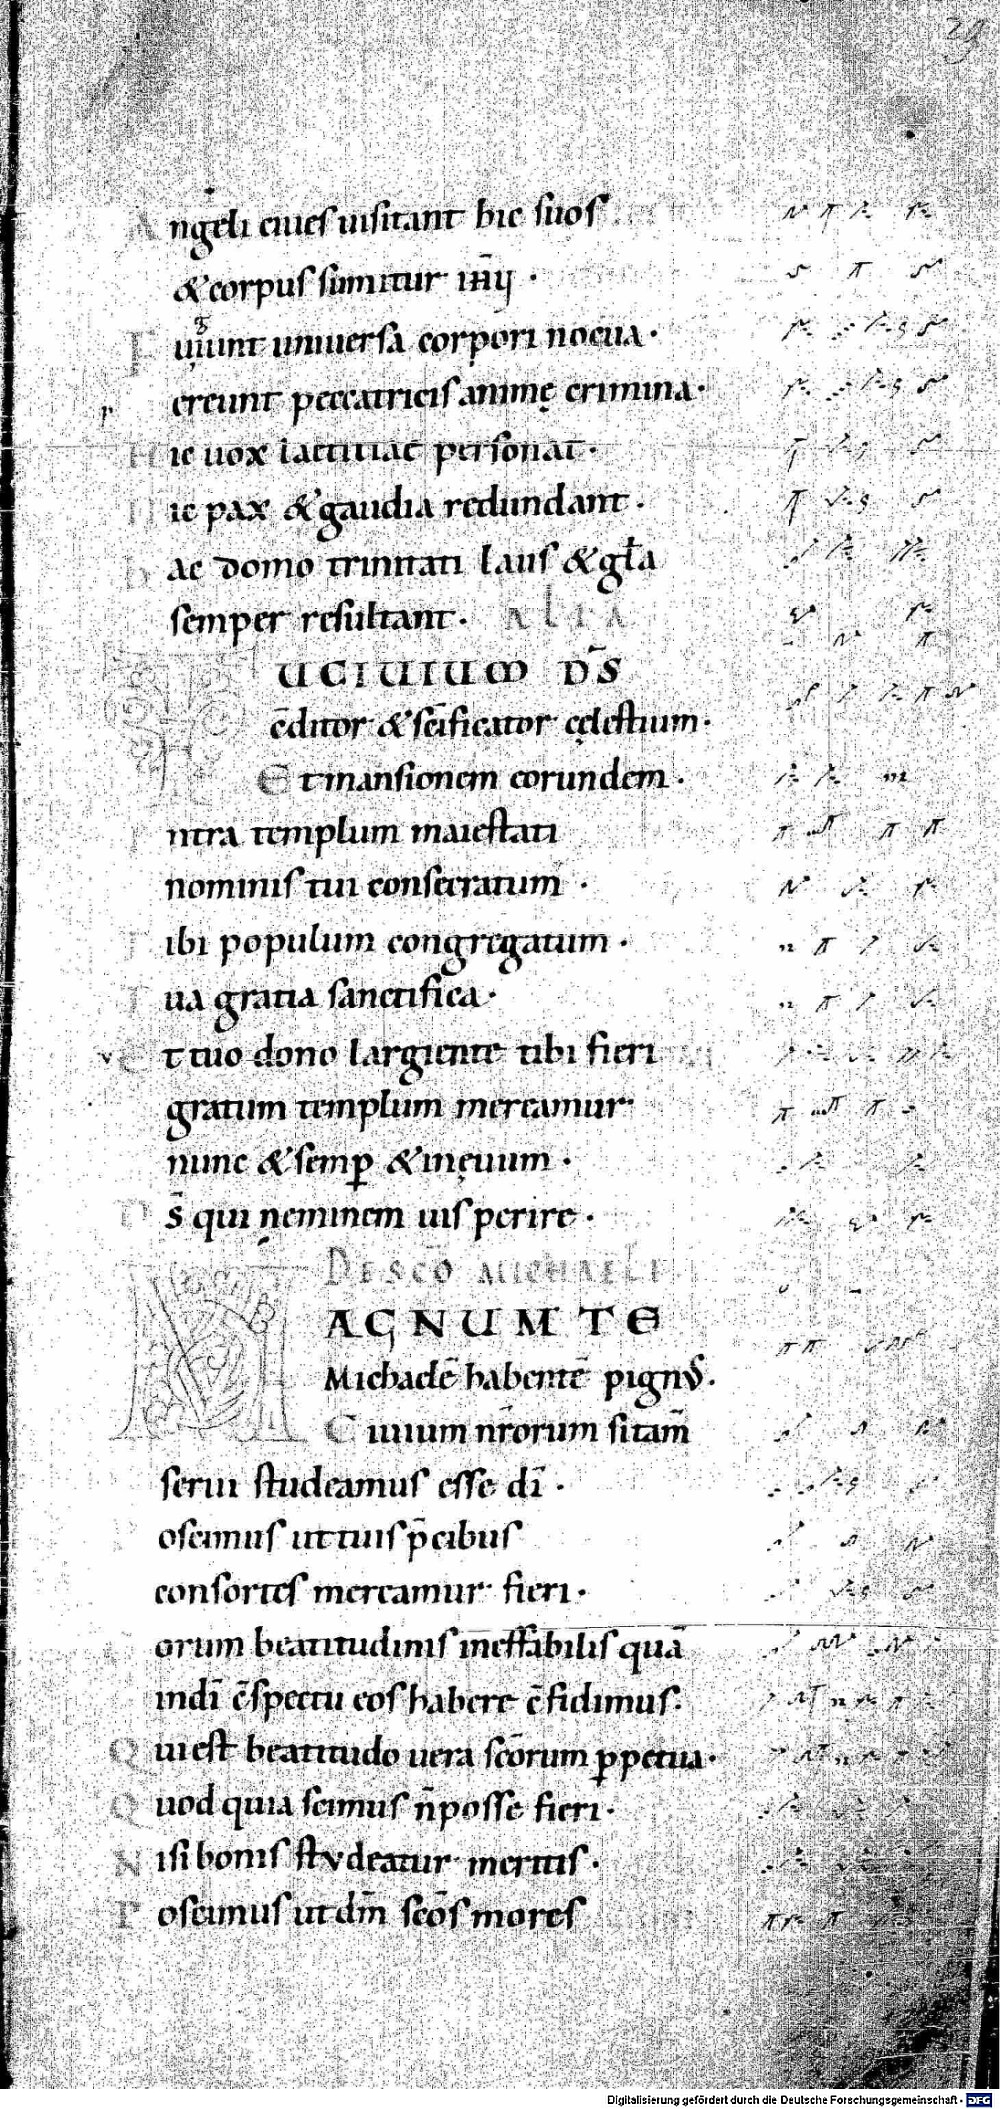 29
Angeli ciues uisitant hic suos
& corpus sumitur iħu ·
Fugiunt uniuersa corpori nocua ·
Pereunt peccatricis animę crimina ·
Hic uox laetitiae personat ·
Hic pax & gaudia redundant ·
Hac domo trinitati laus & gła
semper resultant · ALIA
UCIUIUM D̄S
c̄ditor & sc̄ificator cęlestium ·
Et mansionem eorundem ·
Intra templum maiestati
nominis tui consecratum ·
Tibi populum congregatum ·
Tua gratia sanctifica ·
Et tuo dono largiente tibi fieri
gratum templum mereamur
nunc & semꝑ & inęuum ·
D̄s qui neminem uis perire ·
DE SC̄O MICHAELE
MAGNUM TE
Michaelē habentē pignus ·
Ciuium nr̄orum sitam̄
serui studeamus esse dī ·
Poscimus ut tuis p̄cibus
consortes mereamur fieri ·
Eorum beatitudinis ineffabilis quā
in dī c̄spectu eos habere c̄fidimus ·
Qui est beatitudo uera sc̄orum ꝑpetua ·
Quod quia scimus n̄ posse fieri ·
Nisi bonis studeatur meritis ·
Poscimus ut dm̄ sc̄os mores
Digitalisierung gefördert durch die Deutsche Forschungsgemeinschaft · DFG